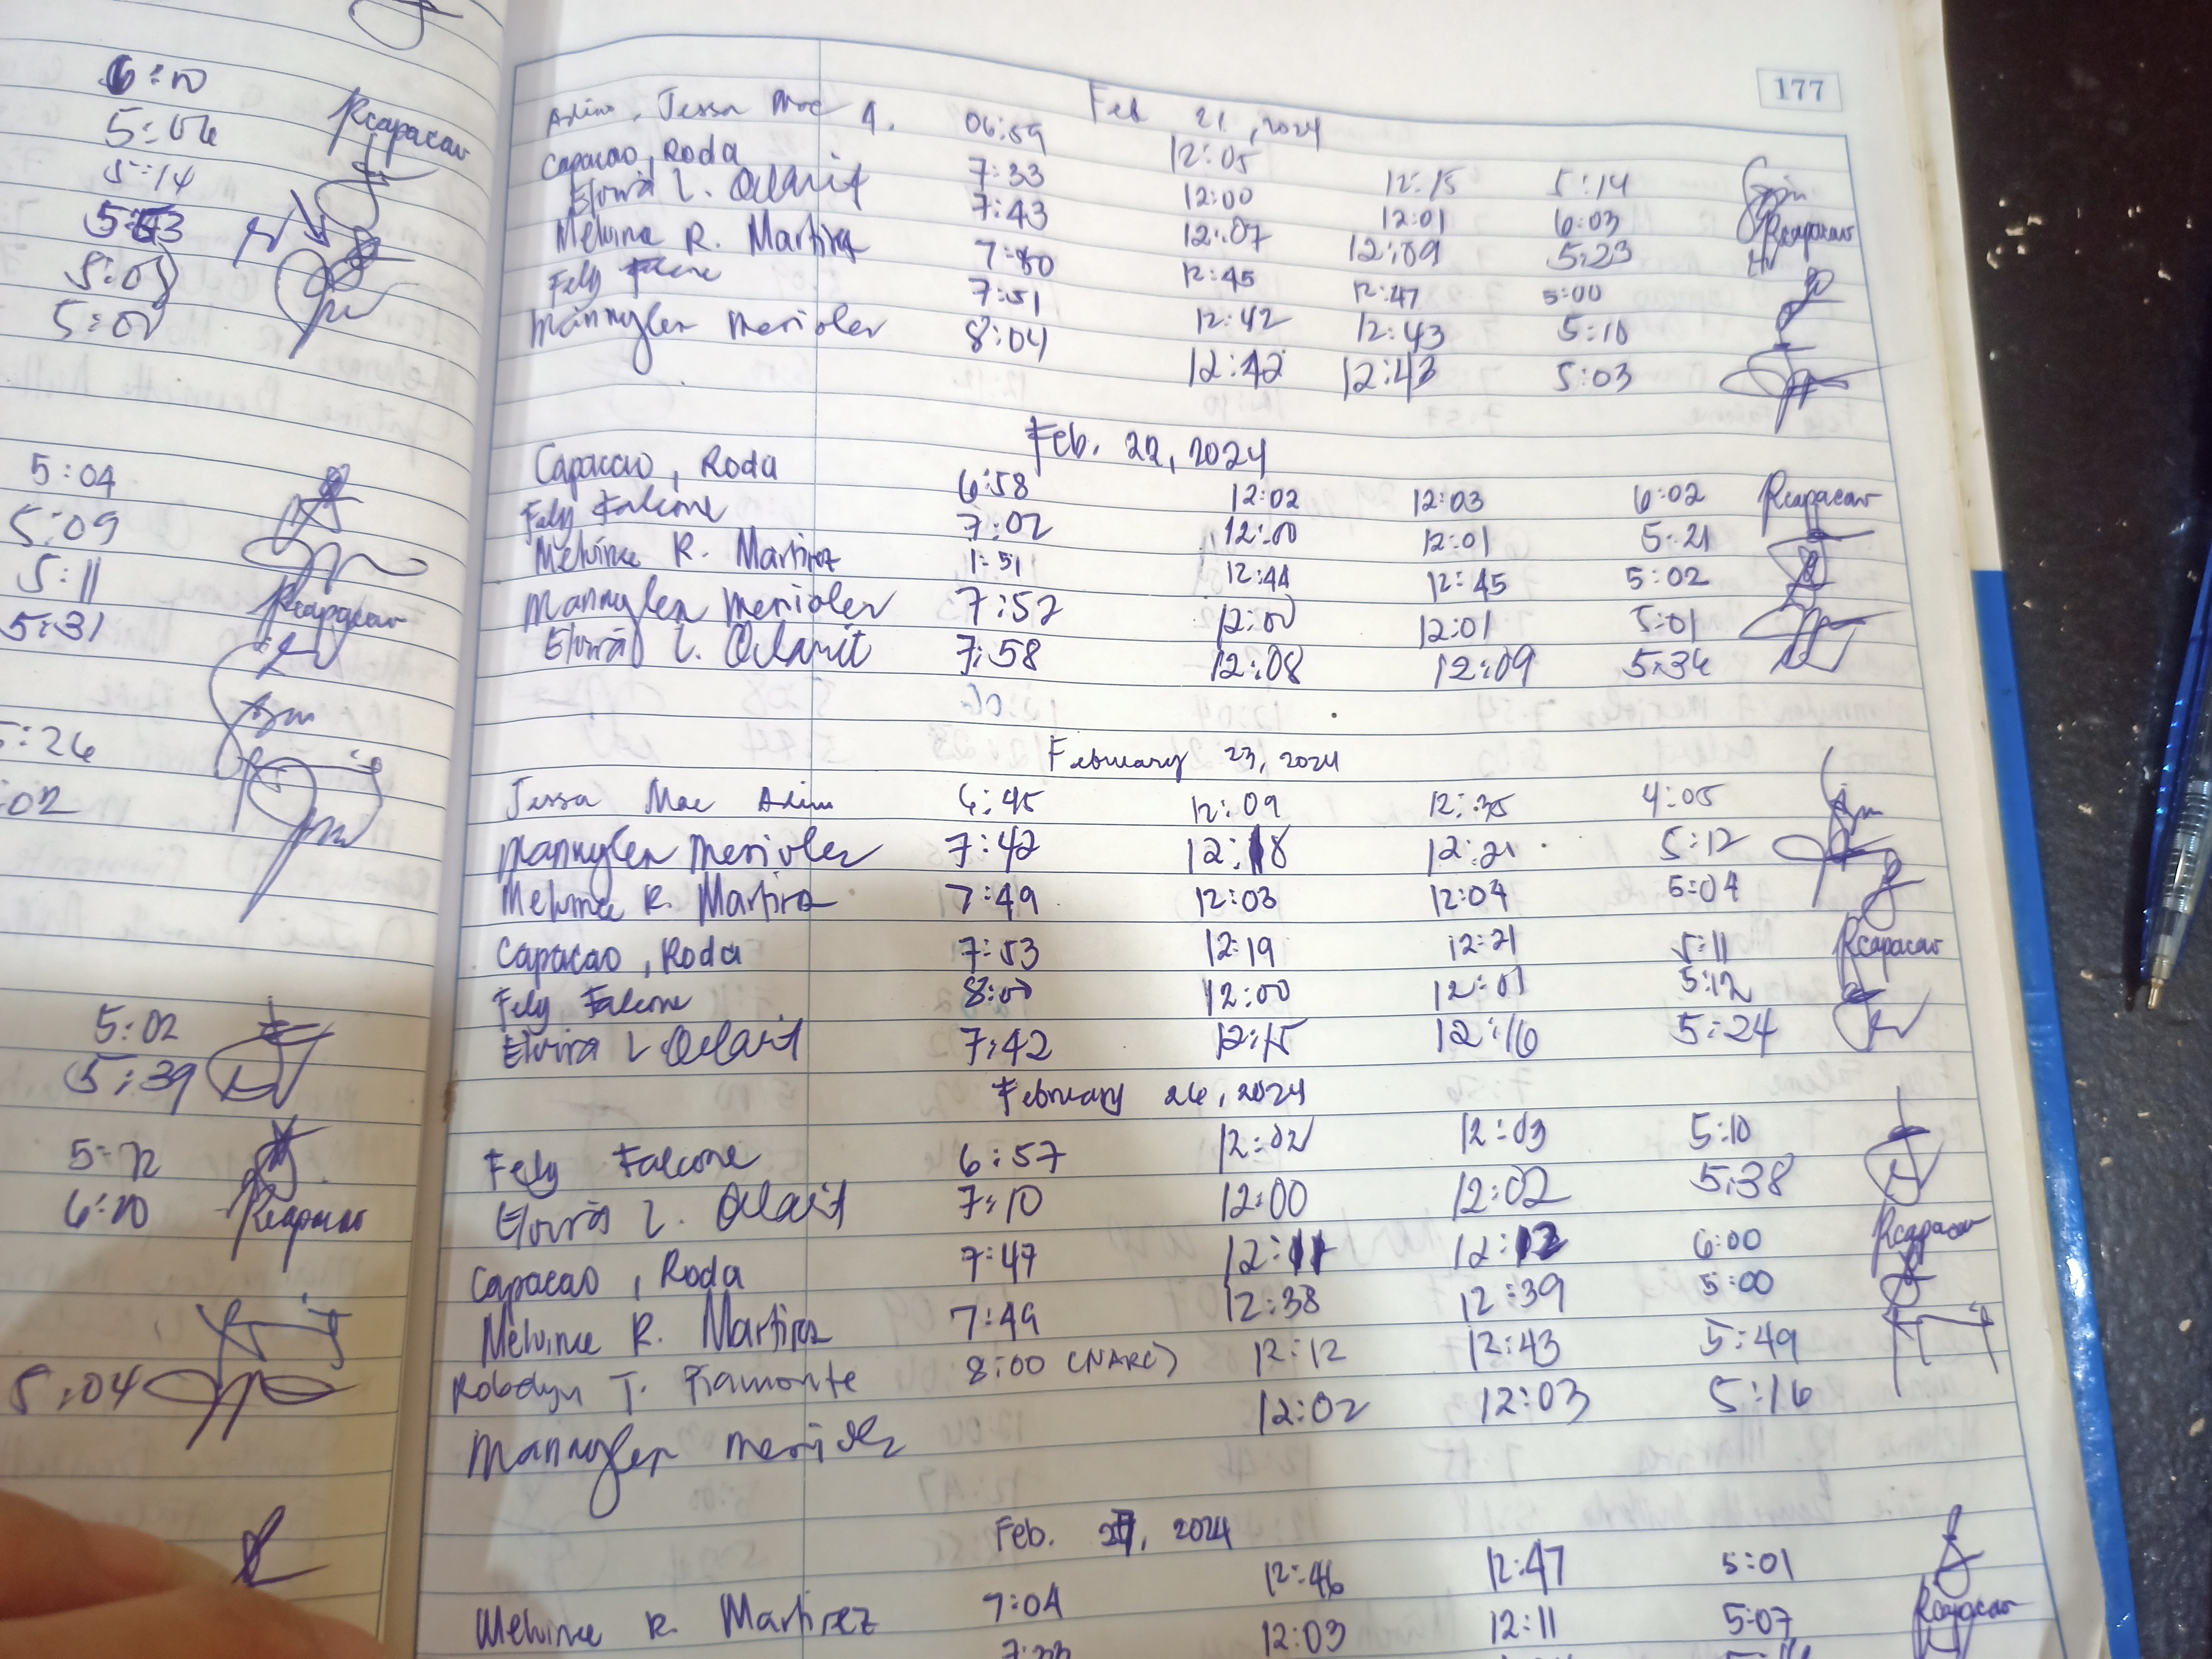 6:10
5:06 Rcapacao
5:14
5:03
5:05
5:01
5:04
5:09
5:11 Rcapacao
5:31
5:26
:02
5:02
5:39
5:12
6:10 Rcapacao
5:04
177
Feb 21, 2024
Jessa Mae A. 06:59 12:05 12:15 5:14
Capacao, Roda 7:33 12:00 12:01 6:03 Rcapacao
Elvira L. 7:43 12:07 12:09 5:23
Melvince R. Martirez 7:50 12:45 12:47 5:00
Fely Falcone 7:51 12:42 12:43 5:10
Mannylen Merioles 8:04 12:42 12:43 5:03
Feb. 22, 2024
Capacao, Roda 6:58 12:02 12:03 6:02 Rcapacao
Fely Falcone 7:02 12:00 12:01 5:21
Melvince R. Martirez 7:51 12:44 12:45 5:02
Mannylen Merioles 7:52 12:00 12:01 5:01
Elvira L. 7:58 12:08 12:09 5:36
February 23, 2024
Jessa Mae 6:45 12:09 12:35 4:05
Mannylen Merioles 7:42 12:18 12:21 5:12
Melvince R. Martirez 7:49 12:03 12:04 5:04
Capacao, Roda 7:53 12:19 12:21 5:11 Rcapacao
Fely Falcone 8:00 12:00 12:01 5:12
Elvira L. 7:42 12:15 12:16 5:24
February 26, 2024
Fely Falcone 6:57 12:02 12:03 5:10
Elvira L. 7:10 12:00 12:02 5:38
Capacao, Roda 7:47 12:11 12:12 6:00 Rcapacao
Melvince R. Martirez 7:49 12:38 12:39 5:00
Robelyn T. Piamonte 8:00 (NARC) 12:12 12:43 5:49
Mannylen Merioles 12:02 12:03 5:16
Feb. 27, 2024
Melvince R. Martirez 7:04 12:46 12:47 5:01
12:03 12:11 5:07 Rcapacao